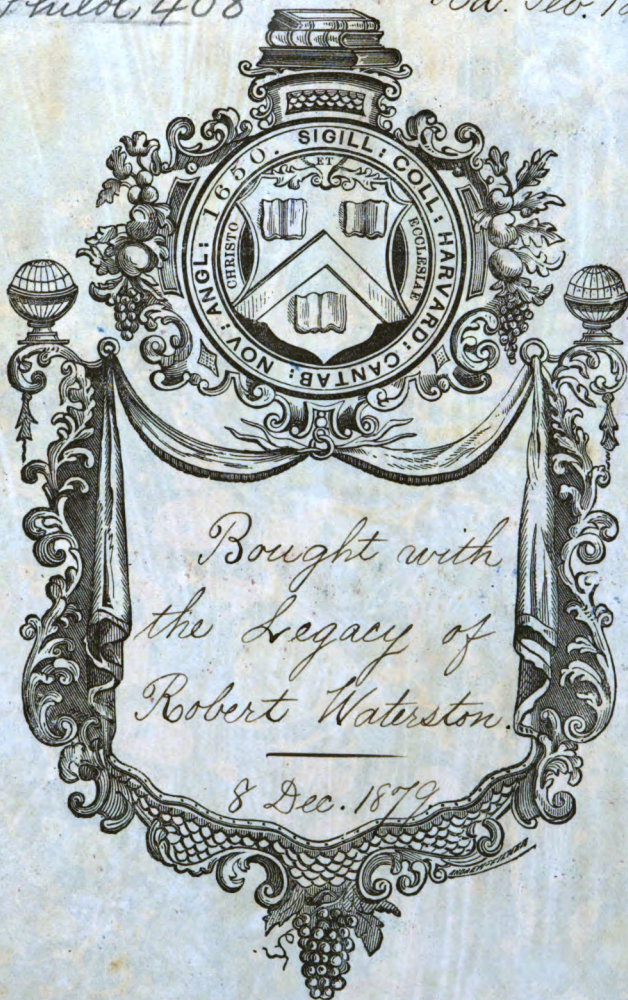 408
SIGILL: COLL: HARVARD: CANTAB: NOV: ANGL: 1650.
CHRISTO
ET
ECCLESIAE
Bought with
the Legacy of
Robert Waterston.
8 Dec. 1879